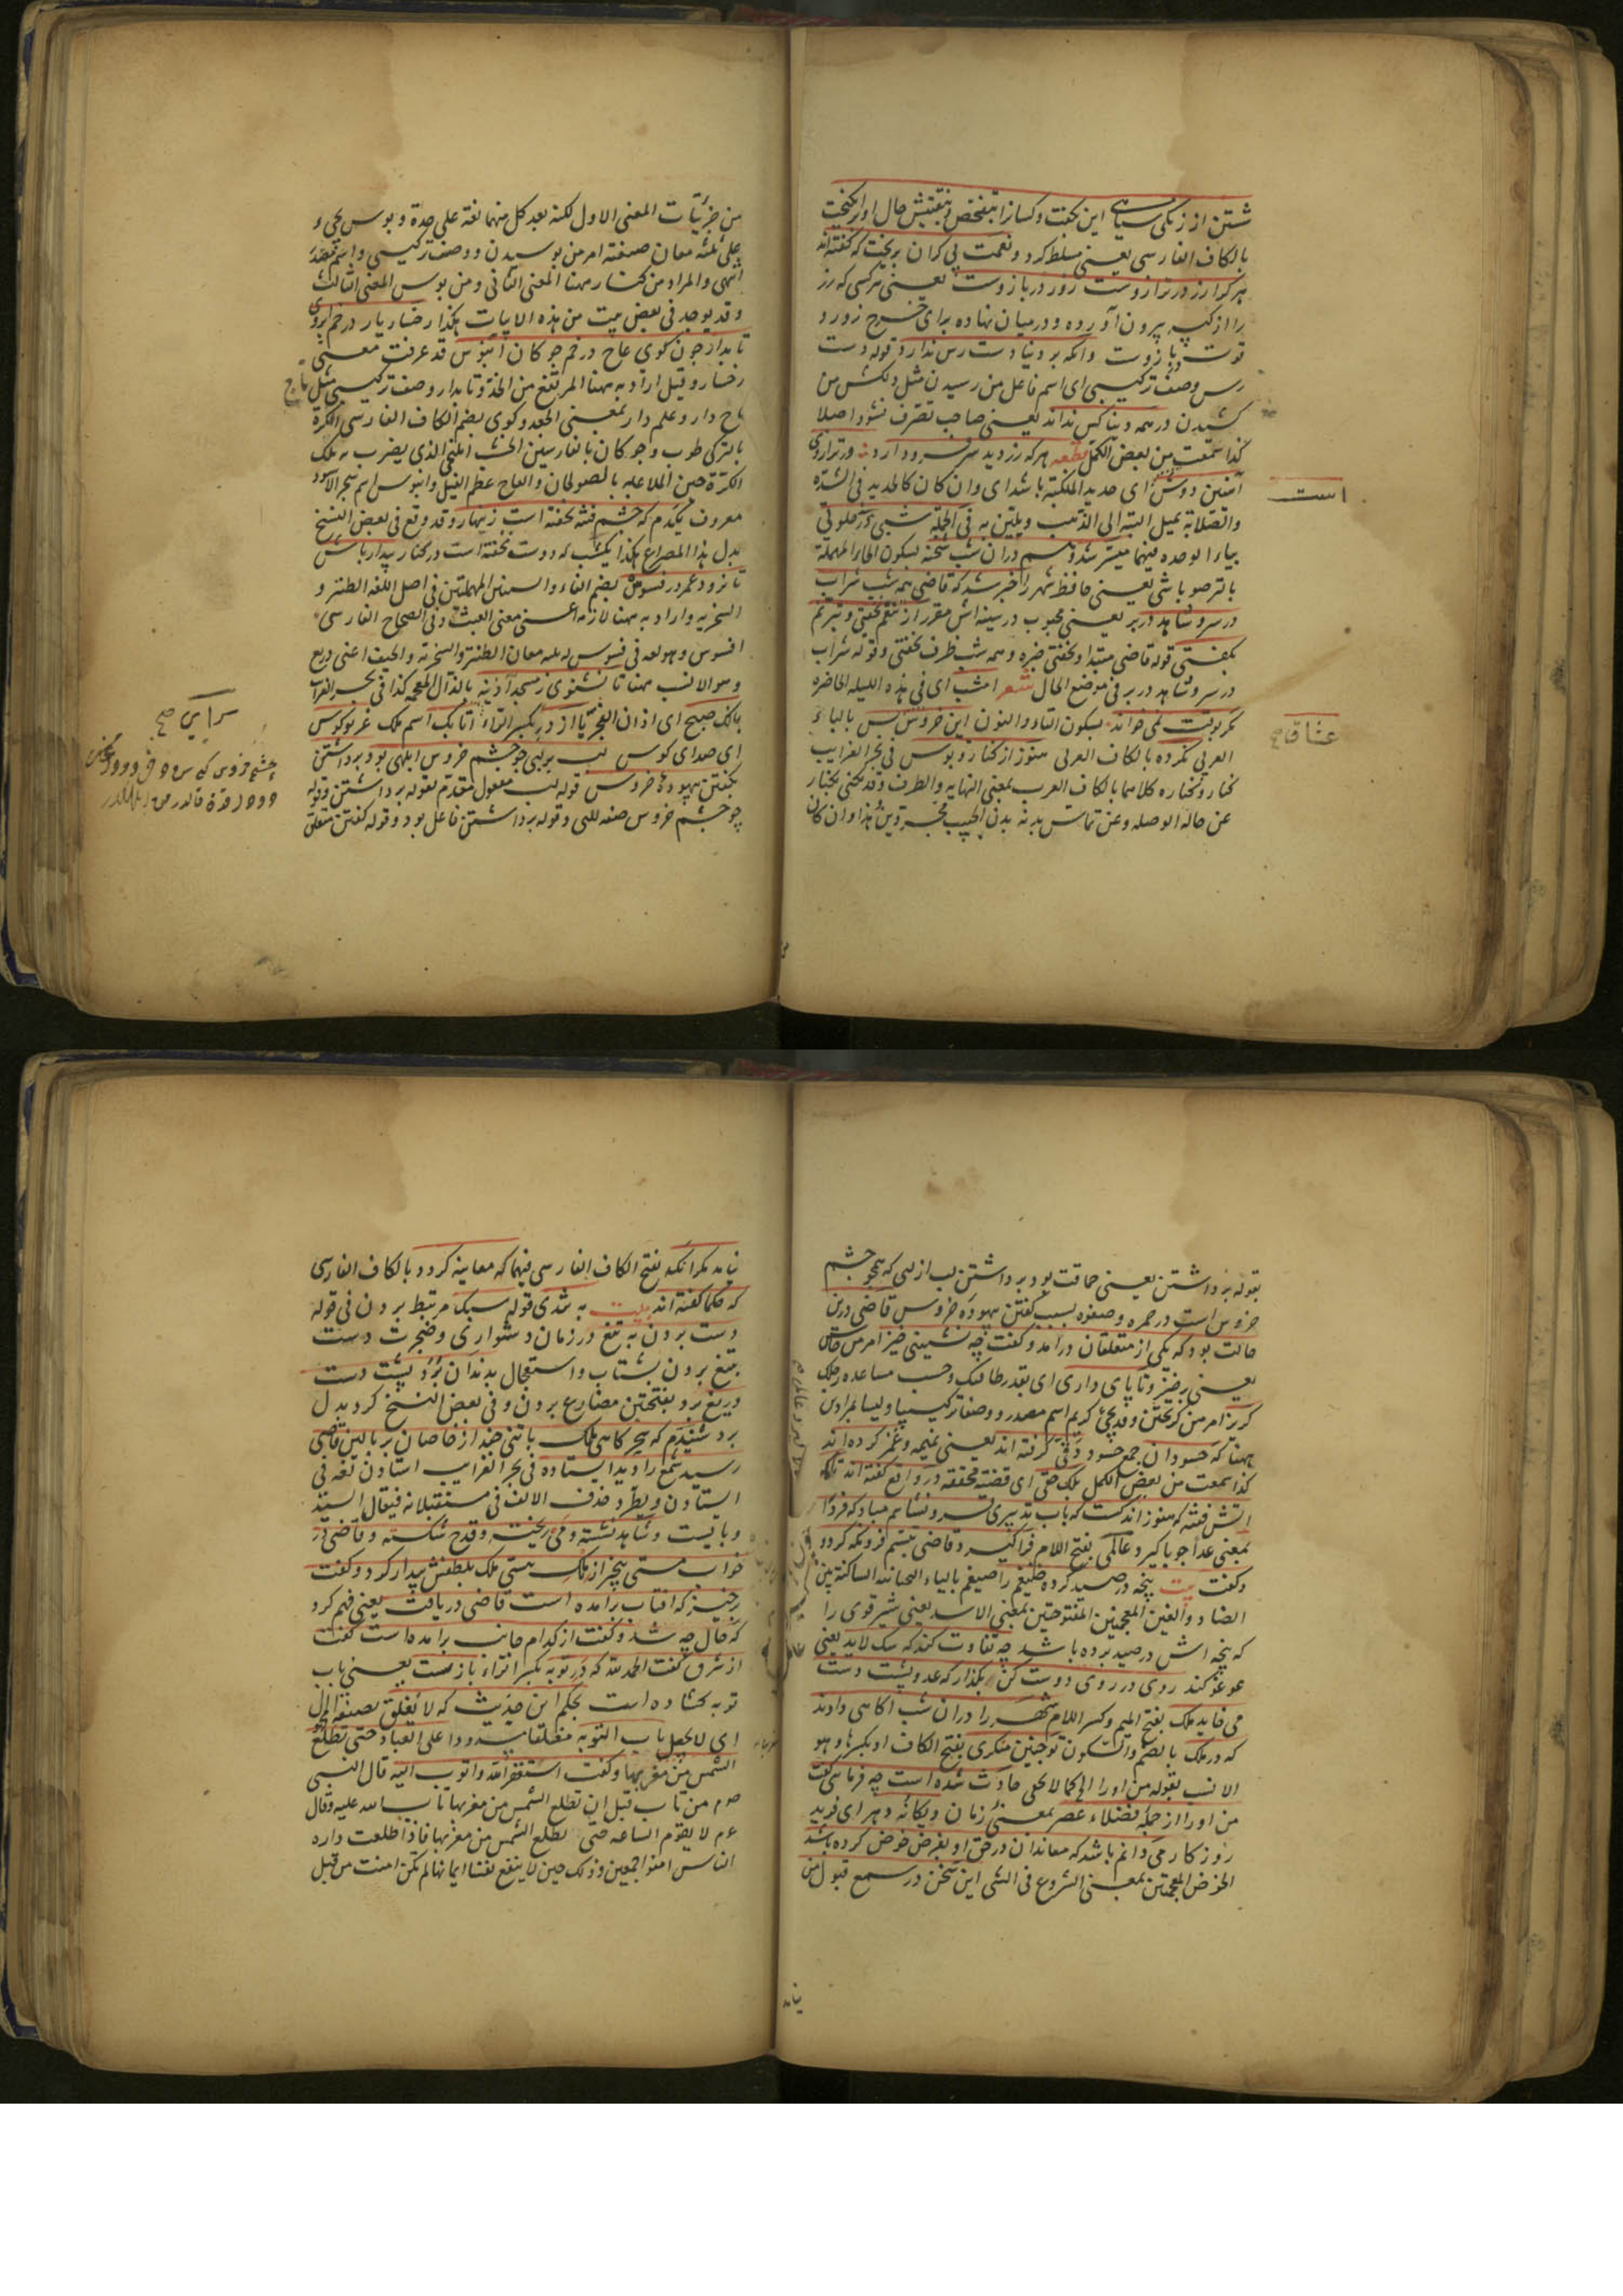 شتن از زنكی سیاهی این بكفت و كسانرا بتفحص و بتفتیش حال او برانكیخت
بالكاف الفارسی یعنی مسلط كرد و نعمت بی كران بریخت كه كفته اند
هر كرا زر در ترازوست زور در بازوست یعنی هر كسی كه زر
را از كیسه بیرون آورده و در میان نهاده برای خرج زور و
قوت در بازوست وانكه بر دنیا دست رس ندارد قوله دست
رس وصف تركیبی ای اسم فاعل من رسیدن مثل دلكش من
كشیدن در همه دنیا كس ندارد یعنی صاحب تصرف نشود اصلا
كذا سمعت من بعض الكمل قطعه هر كه زر دید سر فرود آرد ور ترازوی
آهنین دوش ای حدید المنكبة باشد ای وان كان كالحدید فی الشدة
والصلابة یمیل البتة الی الذهب ویلین به فی الجمله شبی در خلوتی
بیاء الوحده فیهما میسر شد و هم در آن شب شحنه بسكون الحاء المهملة
بالتر صوباشی یعنی حافظ شهر را خبر شد كه قاضی همه شب شراب
در سر و شاهد در بر یعنی محبوب در سینه اش مقرر از تنعم نخفتی و بترنم
بكفتی قوله قاضی مبتدا و نخفتی خبره و همه شب ظرف نخفتی و قوله شراب
در سر و شاهد در بر فی موضع الحال شعر امشب ای فی هذه اللیله الحاضره
مكر بوقت نمی خواند بسكون التاء والنون این خروس بس بالباء
العربی نكرده بالكاف العربی هنوز از كنار و بوس فی بحر الغرایب
كنار و كناره كلاهما بالكاف العرب بمعنی النهایه والطرف وقد یكنی بكنار
عن حالة الوصله وعن تماس بدنه بدن الحبیب مجردین هذا وان كان
است
عناق صح
من جزئیات المعنی الاول لكنه بعد كل منهما لغة علی حدة و بوس یجیء
علی ثلثه معان صیغته امر من بوسیدن و وصف تركیبی واسم مصدر
انتهی والمراد من كنار ههنا المعنی الثانی ومن بوس المعنی الثالث
وقد یوجد فی بعض بیت من هذه الابیات هكذا رخسار یار در خم ابروی
تابدار چون كوی عاج در خم چوكان آبنوس قد عرفت معنی
رخسار و قیل اراد به ههنا المرتفع من الخد و تابدار وصف تركیبی مثل تاج
تاج دار و علم دار بمعنی الجعد و كوی بضم الكاف الفارسی الكرة
بالتركی طوب و چوكان بالفارسیین الخشب المنحنی الذی یضرب به تلك
الكرة حین الملاعبه بالصولجان والعاج عظم الفیل وآبنوس اسم شجر الاسود
معروف یكدم كه چشم فتنه بخفته است زینهار وقد وقع فی بعض النسخ
بدل هذا المصراع هكذا یكشب كه دوست خفته است در كنار بیدار باش
تا نرود عمر در فسوس بضم الفاء والسین المهملتین فی اصل اللغة الطنز و
السخریه و اراد به ههنا لازمه اعنی معنی العبث و فی الصحاح الفارسی
افسوس وهو لغة فی فسوس له ثلثه معان الطنز والسخریة والحیف اعنی دریغ
وهو الانسب ههنا تا نشنوی ز مسجد آدینه بالذال المعجمه كذا فی بحر الغرایب
بانك صبح ای اذان الفجر یا از در بكسر الراء اتابك اسم ملك غریو كوس
ای صدای كوس لب بر لبی چو چشم خروس ابلهی بود برداشتن
بكفتن بیهوده خروس قوله لب مفعول مقدم لقوله برداشتن وقوله
چو چشم خروس صفه للبی وقوله برداشتن فاعل بود وقوله كفتن متعلق
سرای صح
بقوله برداشتن یعنی حماقت بود برداشتن لب از لبی كه همچو چشم
خروس است در حمره و صفوه بسبب كفتن بیهوده خروس قاضی درین
حالت بود كه یكی از متعلقان در آمد و كفت چه نشینی خیز امر من خاستن
یعنی برخیز و تا پای داری ای بقدر طاقتك وحسب مساعده رجلك
كریز امر من كریختن وقد یجیء كریم اسم مصدر و وصفا تركیبیا ولیسا بمرادین
ههنا كه حسودان جمع حسود دقی كرفته اند یعنی نمیمه و غمز كرده اند
كذا سمعت من بعض الكمل بلك حقی ای قضیة محققة در واقع كفته اند تا كه
آتش فتنه كه هنوز اندكست كه بآب تدبیری فرو نشانیم مبادكه فردا
بمعنی غدا چو بالا كیرد عالمی بفتح اللام فرا كیرد قاضی بتبسم در و نكه كرد
و كفت بیت پنجه در صید كرده ضیغم را ضیغم بالیاء التحتانیه الساكنة بین
الضاد والغین المعجمتین المفتوحتین بمعنی الاسد یعنی شیر قوی را
كه پنجه اش در صید برده باشد چه تفاوت كند كه سك لاید یعنی
عوعو كند روی در روی دوست كن بكذار كه عدو پشت دست
می خاید ملك بفتح المیم وكسر اللام شهر را در آن شب آكاهی دادند
كه در ملك بالضم والسكون تو چنین منكری بفتح الكاف او بكسرها وهو
الانسب لقوله من او را الخ كما لا یخفی حادث شده است چه فرمایی كفت
من او را از جمله فضلاء عصر بمعنی زمان و یكانه دهر ای فرید
روزكار می دانم باشد كه معاندان در حق او بغرض خوض كرده باشند
الخوض المعجمتین بمعنی الشروع فی الشی این سخن در سمع قبول من
نیاید
نیاید مكر آنكه بفتح الكاف الفارسی فیهما كه معاینه كردد بالكاف الفارسی
كه حكما كفته اند بیت به تندی قوله سبك مرتبط بردن فی قوله
دست بردن به تیغ در زمان دشواری و ضجرت دست
بتیغ بردن بشتاب واستعجال بدندان برد پشت دست
دریغ برد بفتحتین مضارع بردن وفی بعض النسخ كرد بدل
برد شنیدم كه سحركاهی ملك با تنی چند از خاصان بر بالین قاضی
رسید شمع را دید ایستاده فی بحر الغرایب استادن لغة فی
ایستادن ویطرد حذف الالف فی مستقبلاته فیقال ایستد
و بایست و شاهد نشسته و می ریخته و قدح شكسته و قاضی در
خواب مستی بیخبر از ملك هستی ملك بلطفش بیدار كرد و كفت
برخیز كه آفتاب برآمده است قاضی دریافت یعنی فهم كرد
كه حال چه شد و كفت از كدام جانب برآمده است كفت
از شرق كفت الحمد لله كه در توبه بكسر الراء باز است یعنی باب
توبه كشاده است بحكم این حدیث كه لا یغلق بصیغة المجهول
ای لا یجعل باب التوبه مغلقا مسدودا علی العباد حتی تطلع
الشمس من مغربها و كفت استغفر الله واتوب الیه قال النبی
صم من تاب قبل ان تطلع الشمس من مغربها تاب الله علیه وقال
عم لا یقوم الساعه حتی تطلع الشمس من مغربها فاذا طلعت وراه
الناس آمنوا اجمعین وذلك حین لا ینفع نفسا ایمانها لم تكن امنت من قبل